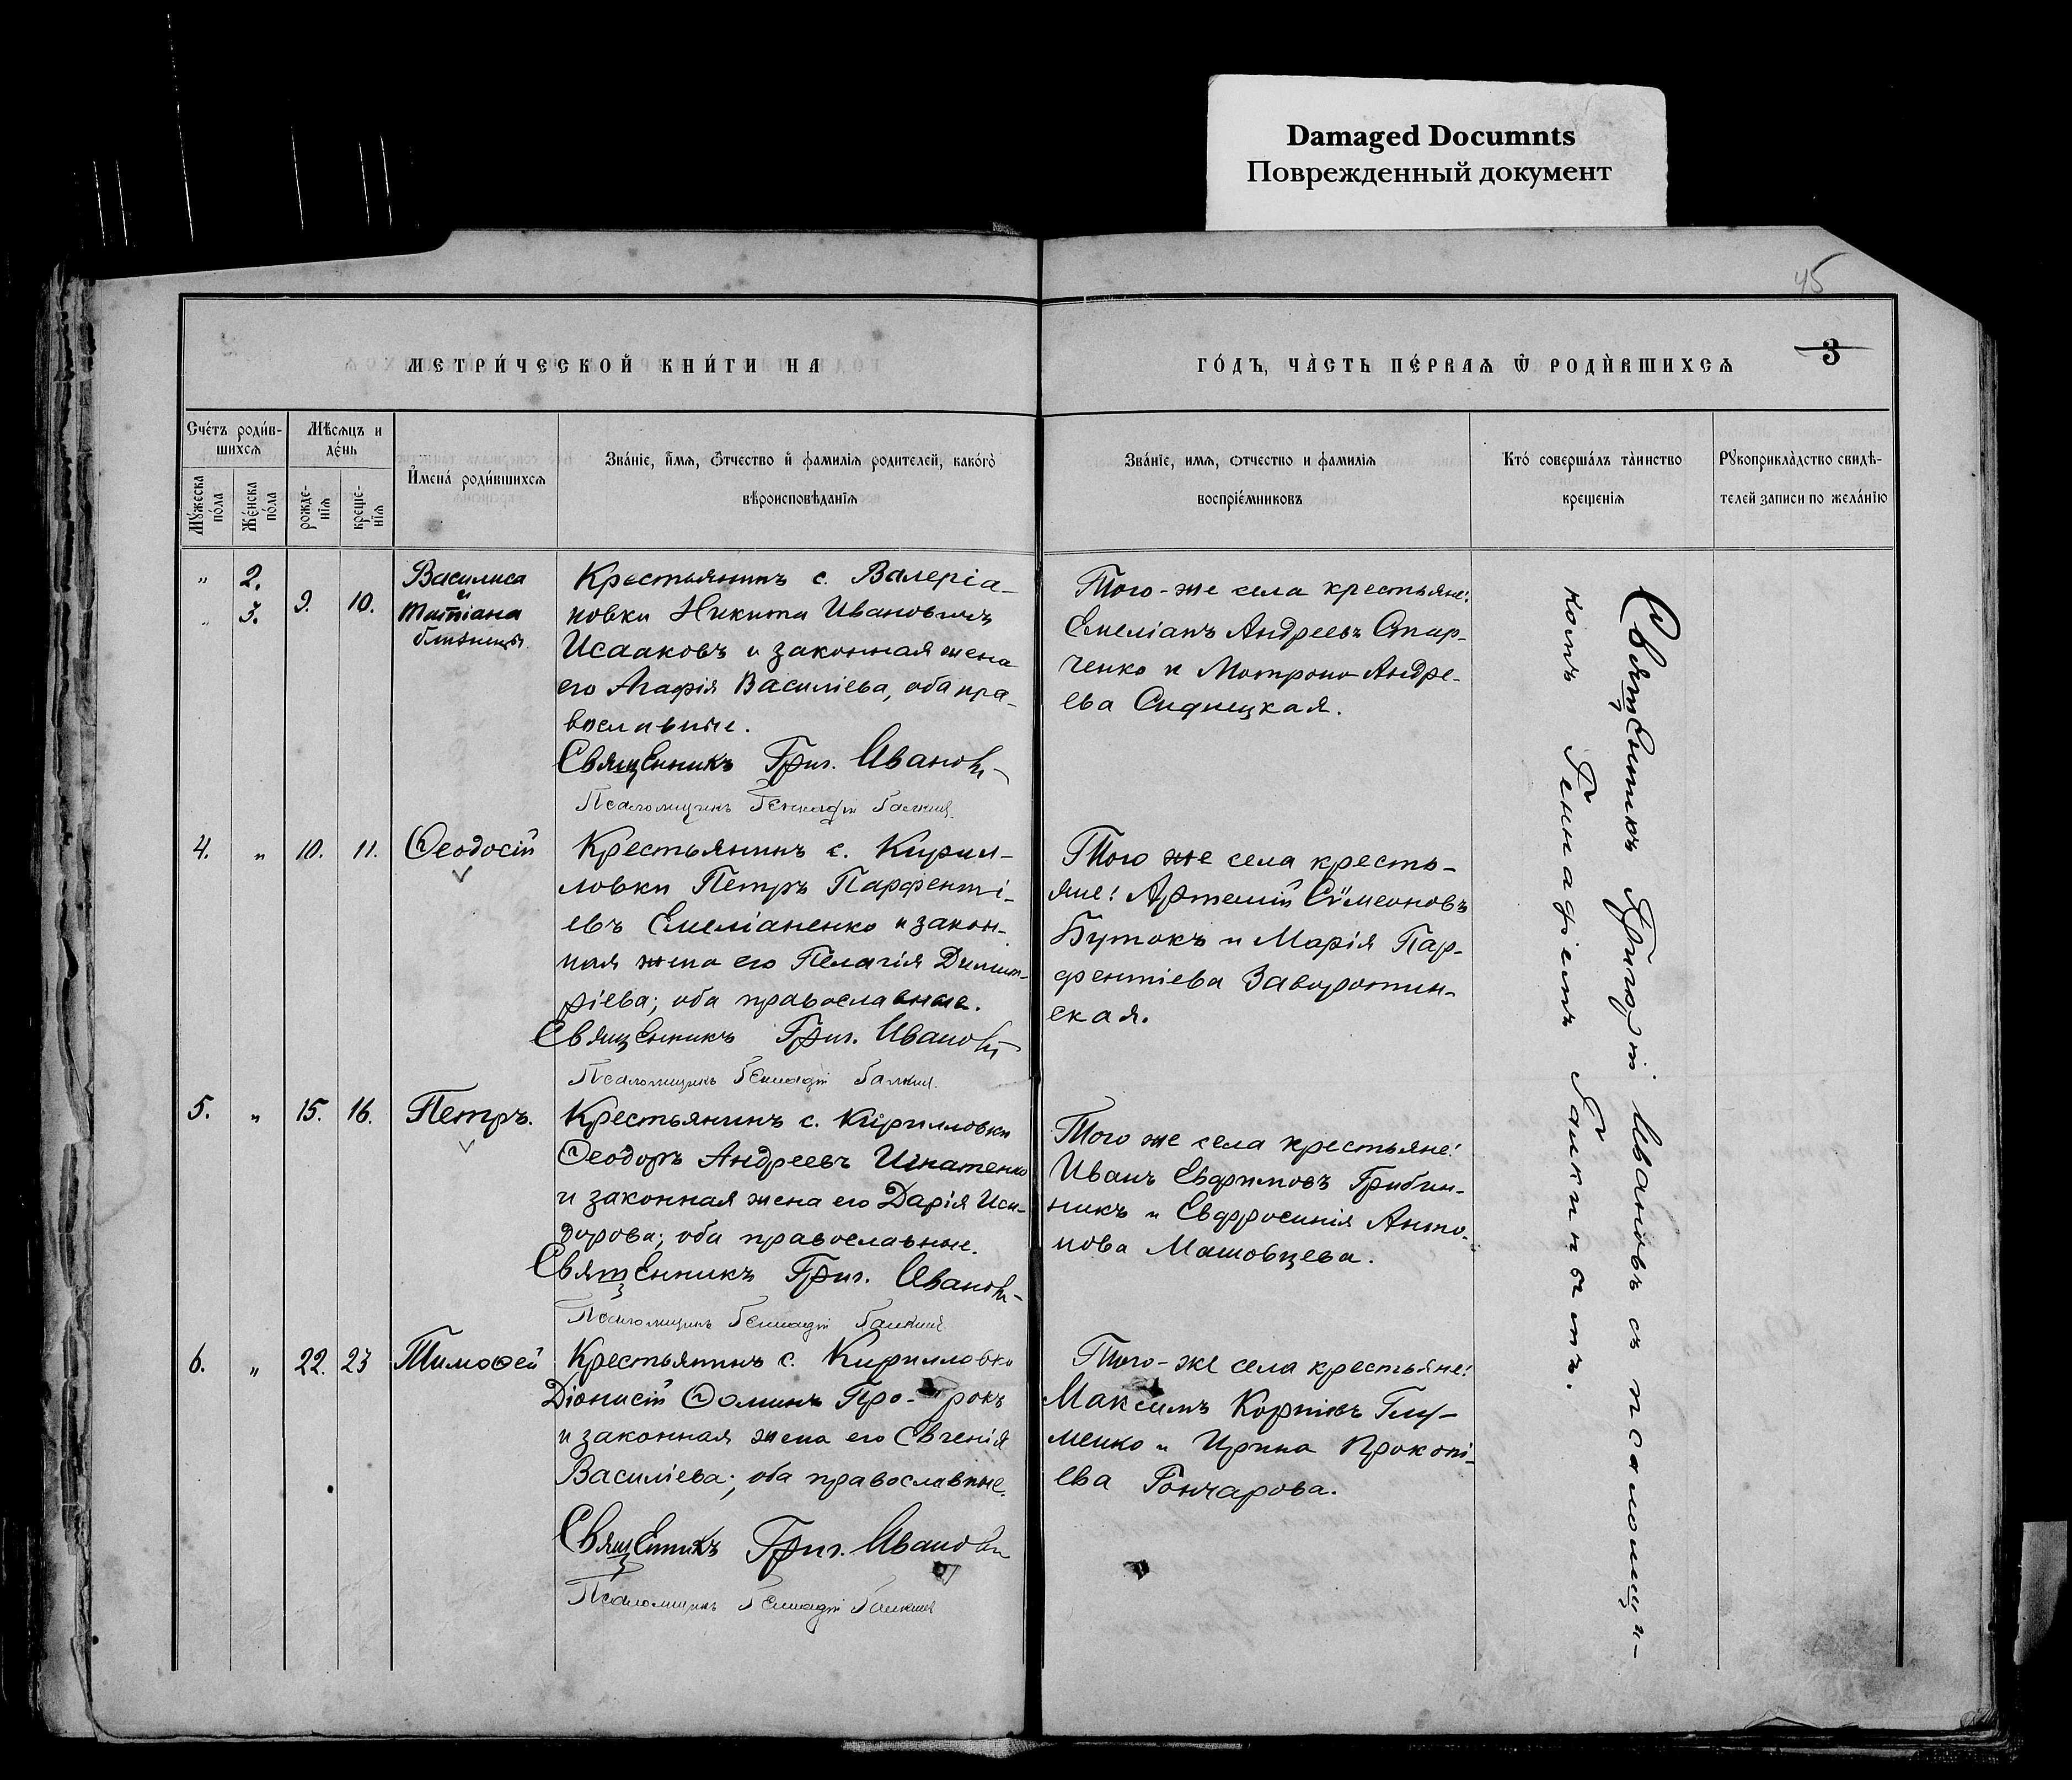 Damaged Documnts
Поврежденный документ
45
МЕТРИ́ЧЕСКОЙ КНИ́ГИ НА
ГО́ДЪ, ЧА̀СТЬ ПЕ́РВАѦ Ѿ РОДЍВШИХСѦ
3
Сче́тъ роди́в-
шихсѧ
Мѣсѧцъ и
де́нь
Му́жеска
по́ла
Же́нска
по́ла
рожде-
нїѧ
креще-
нїѧ
И̓мена́ роди́вшихсѧ
Зва́нїе, и̓́мѧ, ѻ̓́тчество и̓ фамилїѧ родителей, како́гѡ
вѣроисповѣданїѧ
Зва́нїе, имѧ, ѻтчество и фамилїѧ
воспрїе́мниковъ
Кто́ соверша́лъ та̀инство
крещенїѧ
Рꙋкоприкла̀дство свидѣ-
телей записи по жела́нїю
„ 2.
„ 3.
9. 10.
Василиса
и
Татіана
близнецы
Крестьянинъ с. Валеріа-
новки Никита Ивановичъ
Исааковъ и законная жена
его Агафія Василіева, оба пра-
вославные.
Священникъ Григ. Ивановъ
Псаломщикъ Геннадій Галкинъ
Того-же села крестьяне:
Емеліанъ Андреевъ Стар-
ченко и Матрона Андре-
ева Сидницкая.
4. „ 10. 11. Ѳеодосій
Крестьянинъ с. Кирил-
ловки Петръ Парфенті-
евъ Емеліаненко и закон-
ная жена его Пелагія Димит-
ріева; оба православные.
Священникъ Григ. Ивановъ
Псаломщикъ Геннадій Галкинъ
Того же села кресть-
яне: Артемій Сѵмеоновъ
Бутокъ и Марія Пар-
фентіева Заворотин-
ская.
5. „ 15. 16. Петръ.
Крестьянинъ с. Кирилловки
Ѳеодоръ Андреевъ Игнатенко
и законная жена его Дарія Иси-
дорова; оба православные.
Священникъ Григ. Ивановъ
Псаломщикъ Геннадій Галкинъ
Того же села крестьяне:
Иванъ Евфимовъ Грибин-
никъ и Евфросинія Анто-
нова Машовцева.
6. „ 22. 23 Тимоѳей
Крестьянинъ с. Кирилловки
Діонисій Ѳоминъ Про-рокъ
и законная жена его Евгенія
Василіева; оба православные.
Священникъ Григ. Ивановъ
Псаломщикъ Геннадій Галкинъ
Того-же села крестьяне:
Максимъ Корніевъ
и Ирина Прокопі-
ева Гончарова.
Священникъ Григорій Ивановъ съ псаломщи-
комъ Геннадіемъ Галкинымъ.